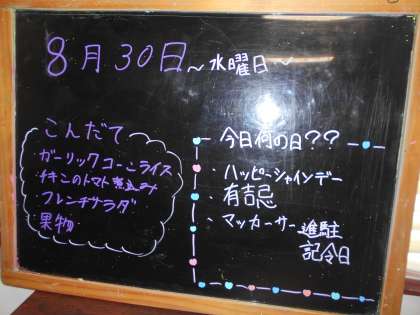 8月30日~水曜日~
こんだて
ガーリックコーンライス
チキンのトマト煮込み
フレンチサラダ
果物
今日何の日??
・ハッピーシャインデー
・有吉忌
・マッカーサー進駐
記念日